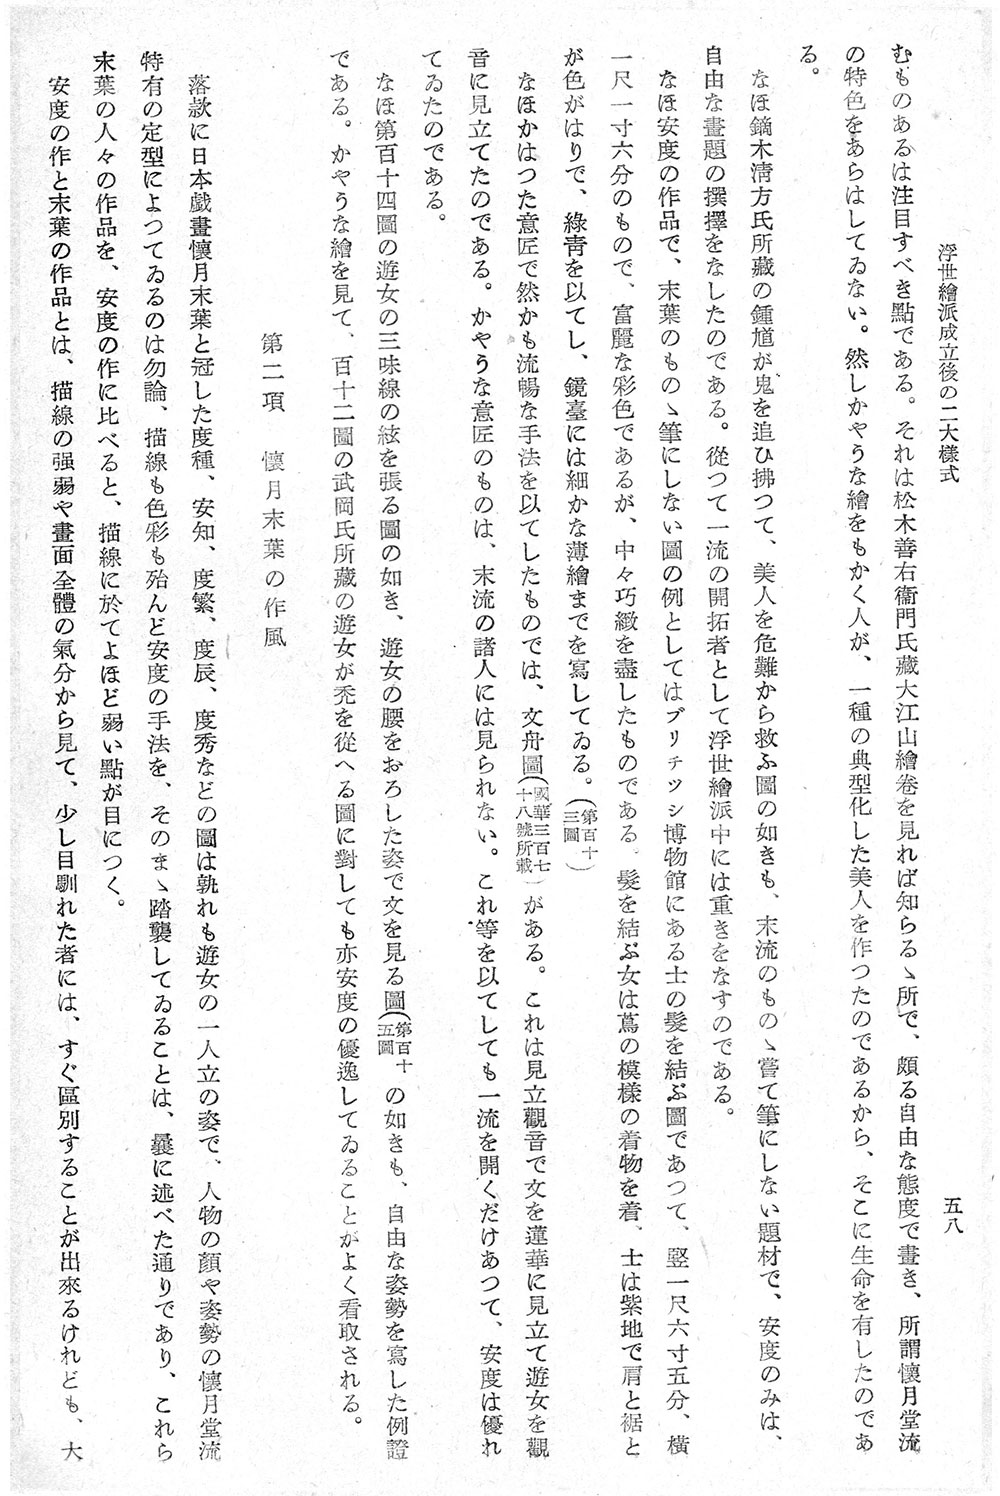 浮世繪派成立後の二大樣式
五八
むものあるは注目すべき點である。それは松木善右衞門氏藏大江山繪卷を見れば知らるゝ所で、頗る自由な態度で畫き、所謂懷月堂流
の特色をあらはしてゐない。然しかやうな繪をもかく人が、一種の典型化した美人を作つたのであるから、そこに生命を有したのであ
る。
なほ鏑木淸方氏所藏の鍾馗が鬼を追ひ拂つて、美人を危難から救ふ圖の如きも、末流のものゝ嘗て筆にしない題材で、安度のみは、
自由な畫題の撰擇をなしたのである。從つて一流の開拓者として浮世繪派中には重きをなすのである。
なほ安度の作品で、末葉のものゝ筆にしない圖の例としてはブリチッシ博物館にある士の髮を結ぶ圖であつて、竪一尺六寸五分、橫
一尺一寸六分のもので、富麗な彩色であるが、中々巧緻を盡したものである。髮を結ぶ女は蔦の模樣の着物を着、士は紫地で肩と裾と
が色がはりで、綠靑を以てし、鏡臺には細かな薄繪までを寫してゐる。(第百十三圖)
なほかはつた意匠で然かも流暢な手法を以てしたものでは、文舟圖(國華三百七十八號所載)がある。これは見立觀音で文を蓮華に見立て遊女を觀
音に見立てたのである。かやうな意匠のものは、末流の諸人には見られない。これ等を以てしても一流を開くだけあつて、安度は優れ
てゐたのである。
なほ第百十四圖の遊女の三味線の絃を張る圖の如き、遊女の腰をおろした姿で文を見る圖(第百十五圖の如きも、自由な姿勢を寫した例證
である。かやうな繪を見て、百十二圖の武岡氏所藏の遊女が禿を從へる圖に對しても亦安度の優逸してゐることがよく看取される。
第二項　懷月末葉の作風
落款に日本戲畫懷月末葉と冠した度種、安知、度繁、度辰、度秀などの圖は孰れも遊女の一人立の姿で、人物の顏や姿勢の懷月堂流
特有の定型によつてゐるのは勿論、描線も色彩も殆んど安度の手法を、そのまゝ踏襲してゐることは、曩に述べた通りであり、これら
末葉の人々の作品を、安度の作に比べると、描線に於てよほど弱い點が目につく。
安度の作と末葉の作品とは、描線の强弱や畫面全體の氣分から見て、少し目馴れた者には、すぐ區別することが出來るけれども、大